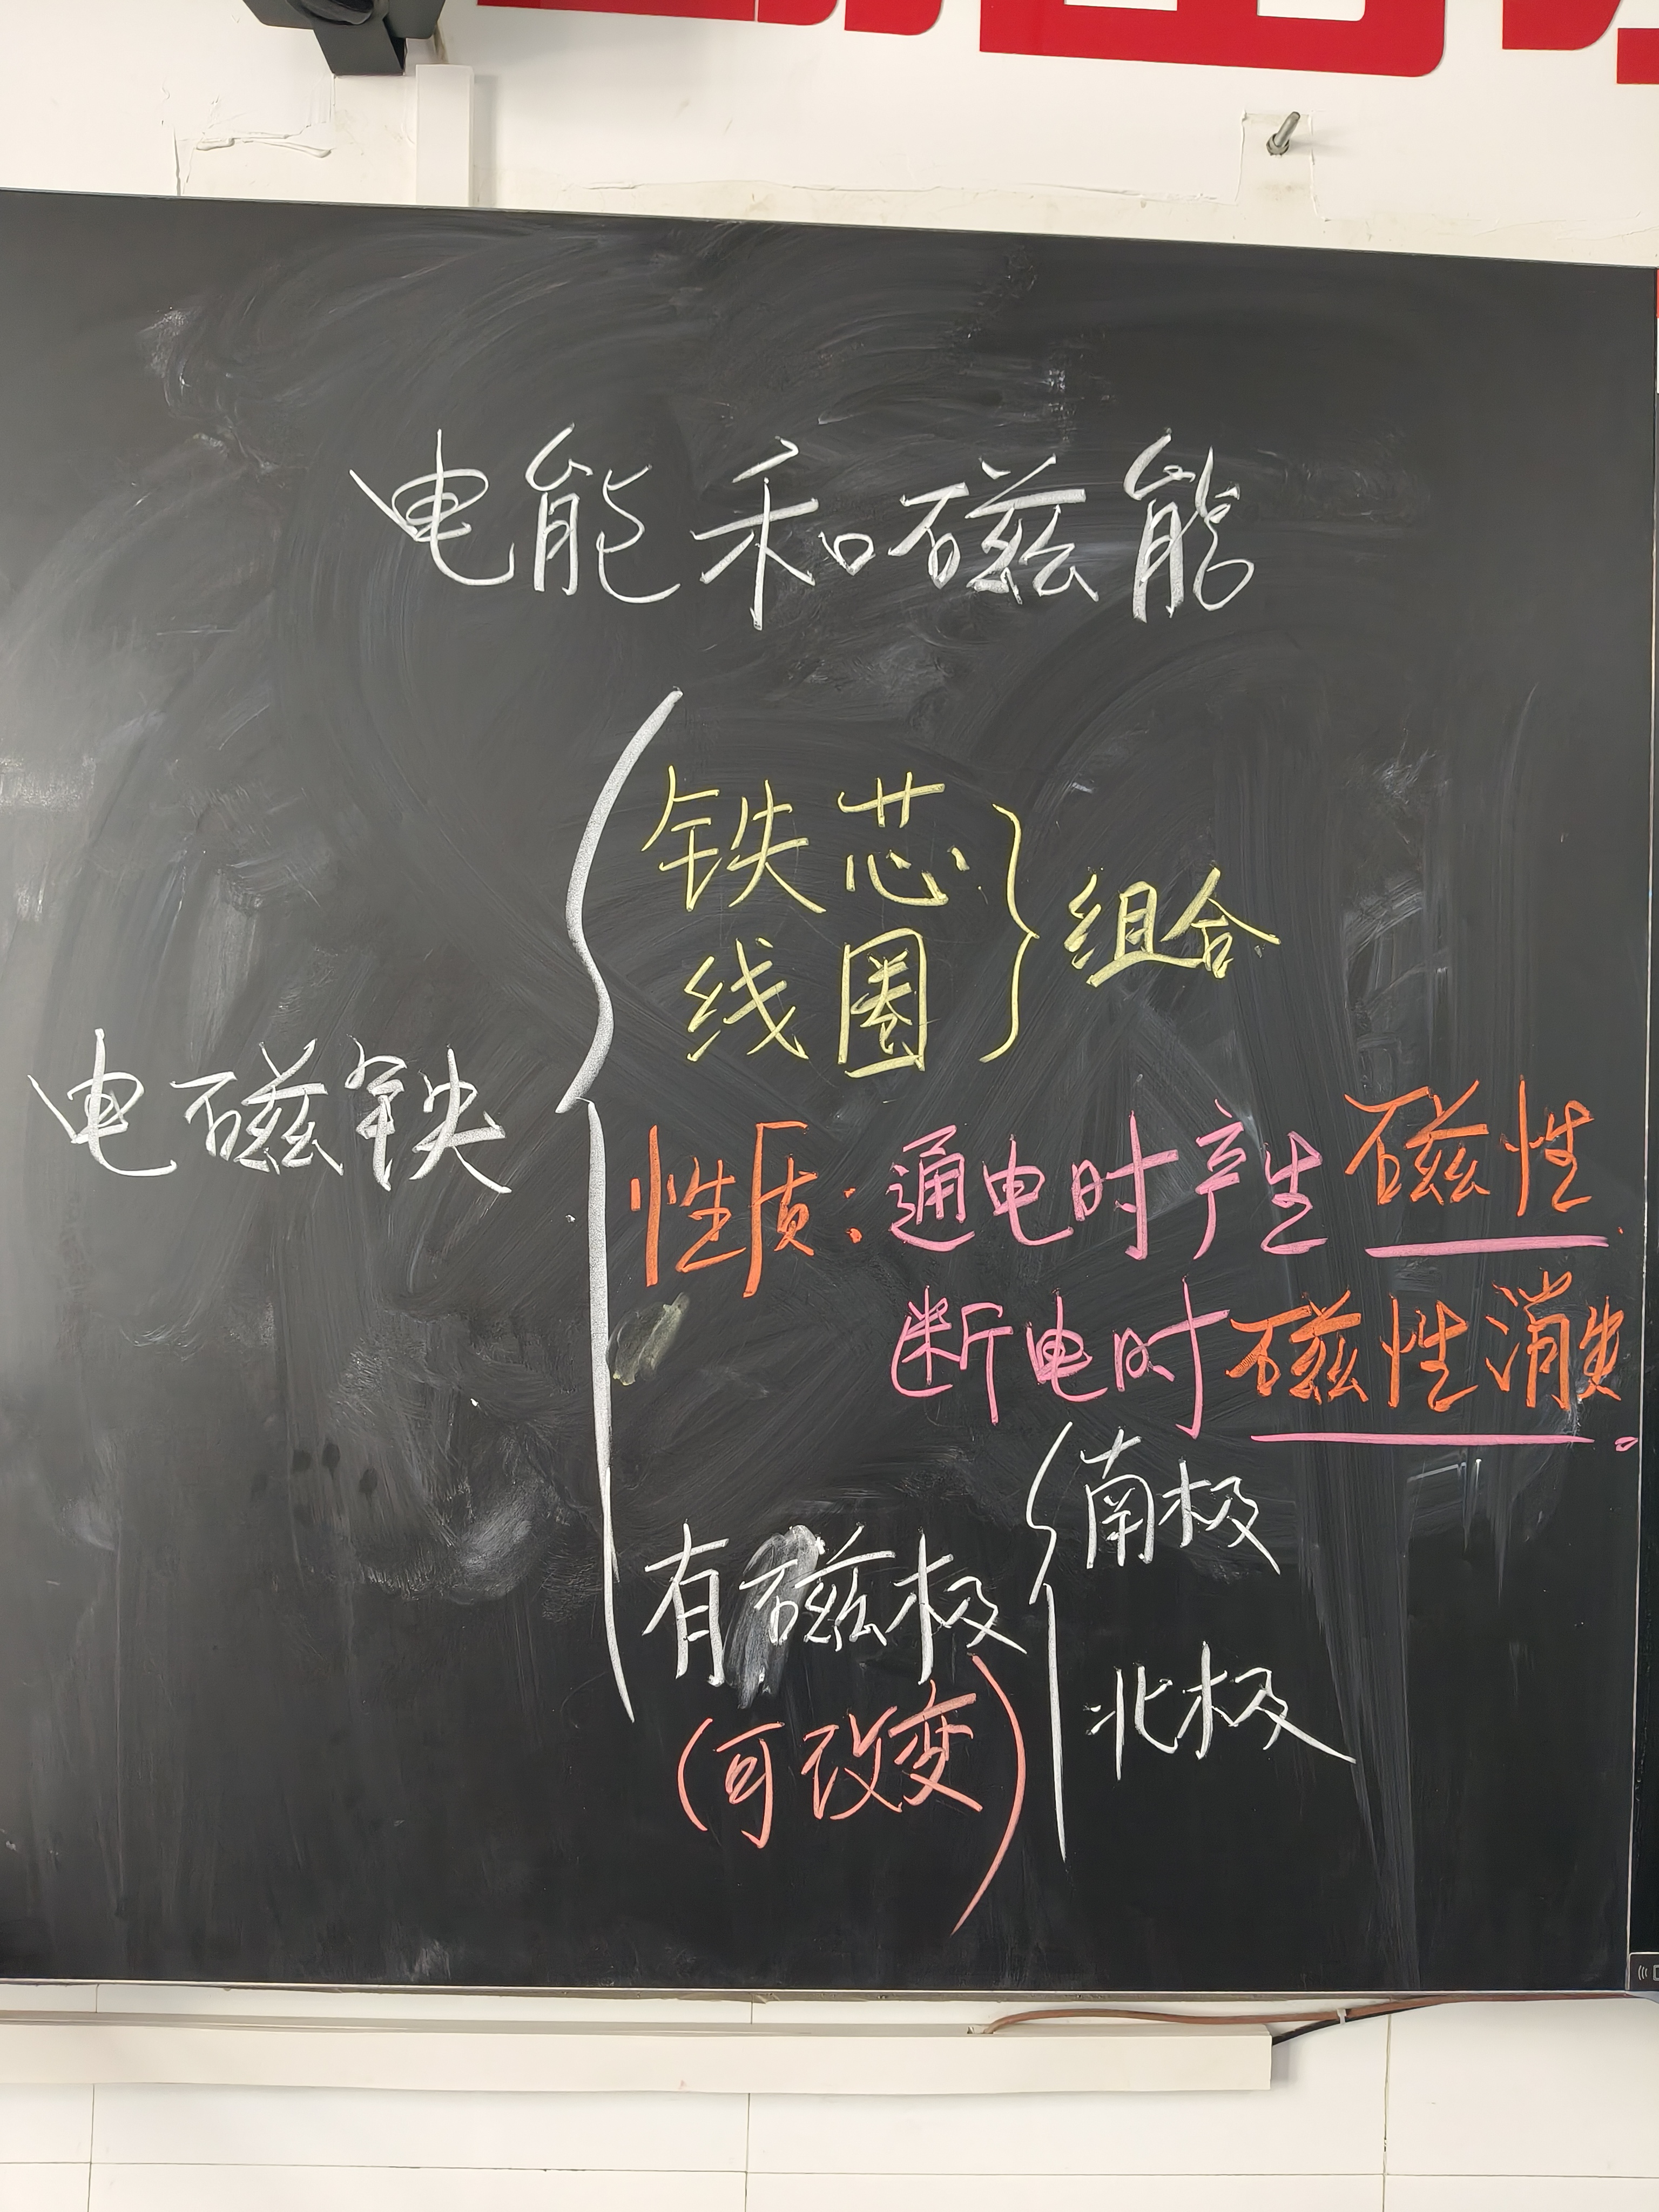 电能和磁能
铁芯
线圈
组合
电磁铁
性质：通电时产生磁性
断电时磁性消失。
有磁极
南极
北极
(可改变)